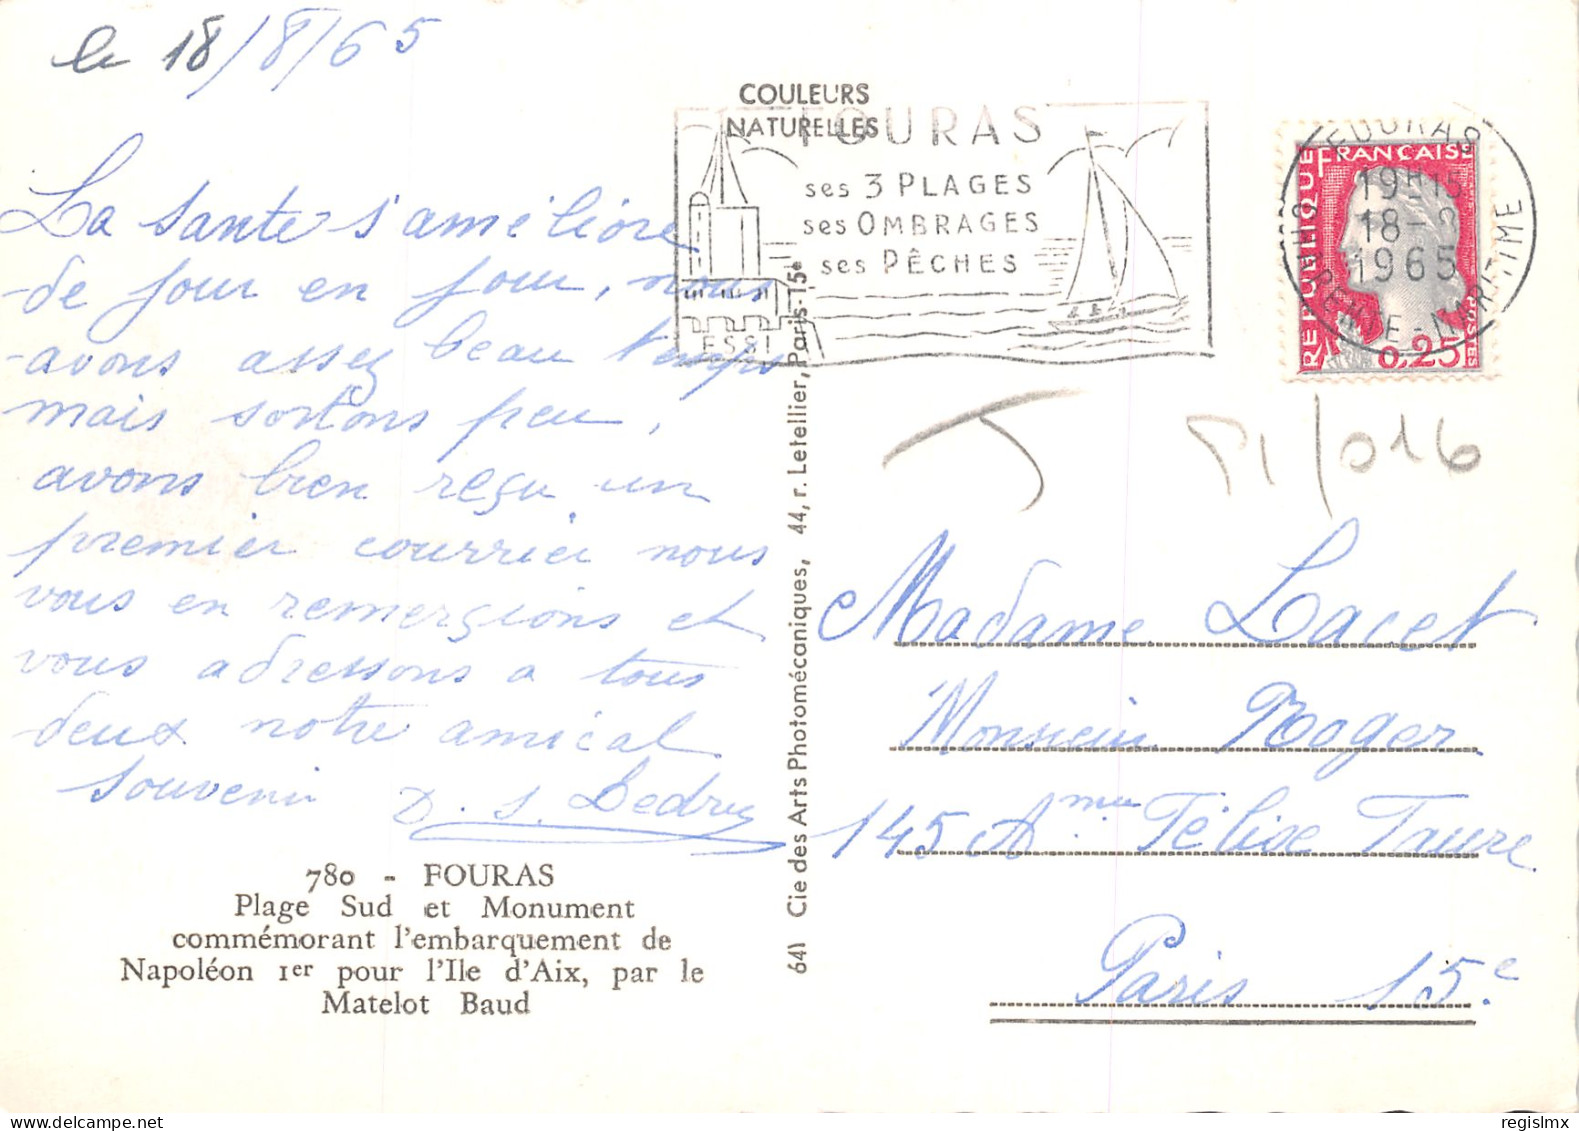 le 18/8/65
La santé s'améliore
de jour en jour, nous
avons assez beau temps
mais sortons peu,
avons bien reçu un
premier courrier nous
vous en remercions et
vous adressons a tous
deux notre amical
souvenir
780 - FOURAS
Plage Sud et Monument
commémorant l'embarquement de
Napoléon 1er pour l'Ile d'Aix, par le
Matelot Baud
COULEURS
NATURELLES
FOURAS
ses 3 PLAGES
ses OMBRAGES
ses PÊCHES
ESSI
641 Cie des Arts Photomécaniques, 44, r. Letellier, Paris-15e
FOURAS
19H15
18-8
1965
CHTE MARITIME
REPUBLIQUE FRANÇAISE
POSTES
0,25
Madame Lacet
Monsieur Roger
145 A Félix Faure
Paris 15.e
regislmx